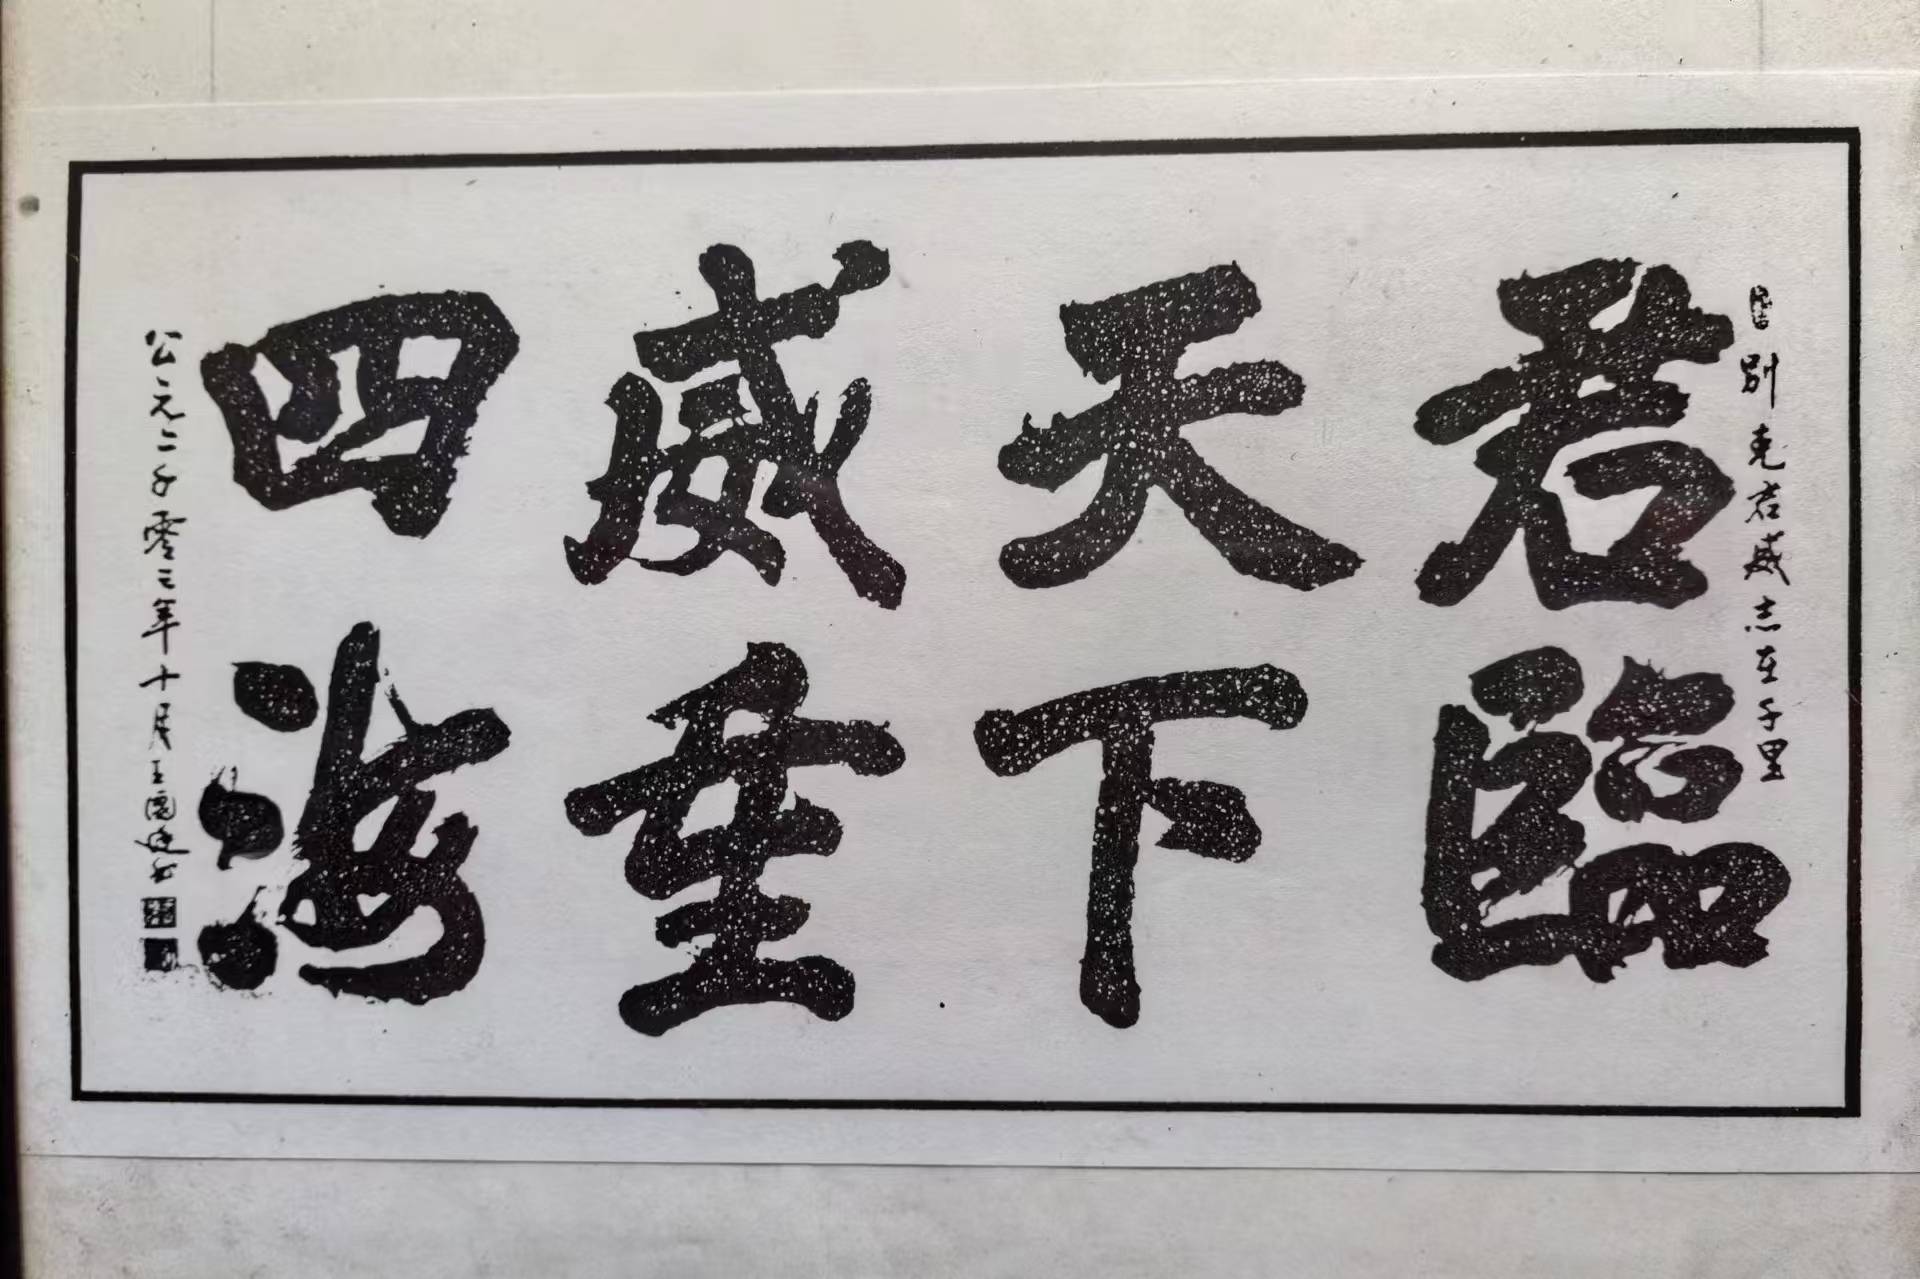 别克君威志在千里
君臨
天下
威垂
四海
公元二千零二年十月王國